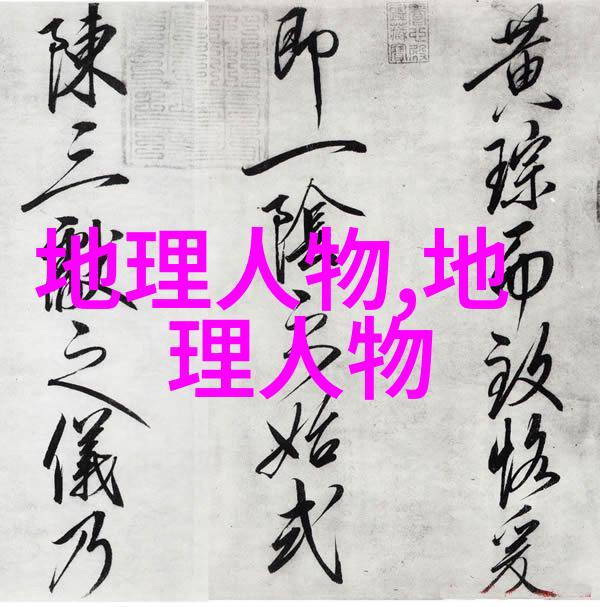 黄琮而致恪爰
即一陰之始式
陳三獻之儀乃
地理人物,地
理人物